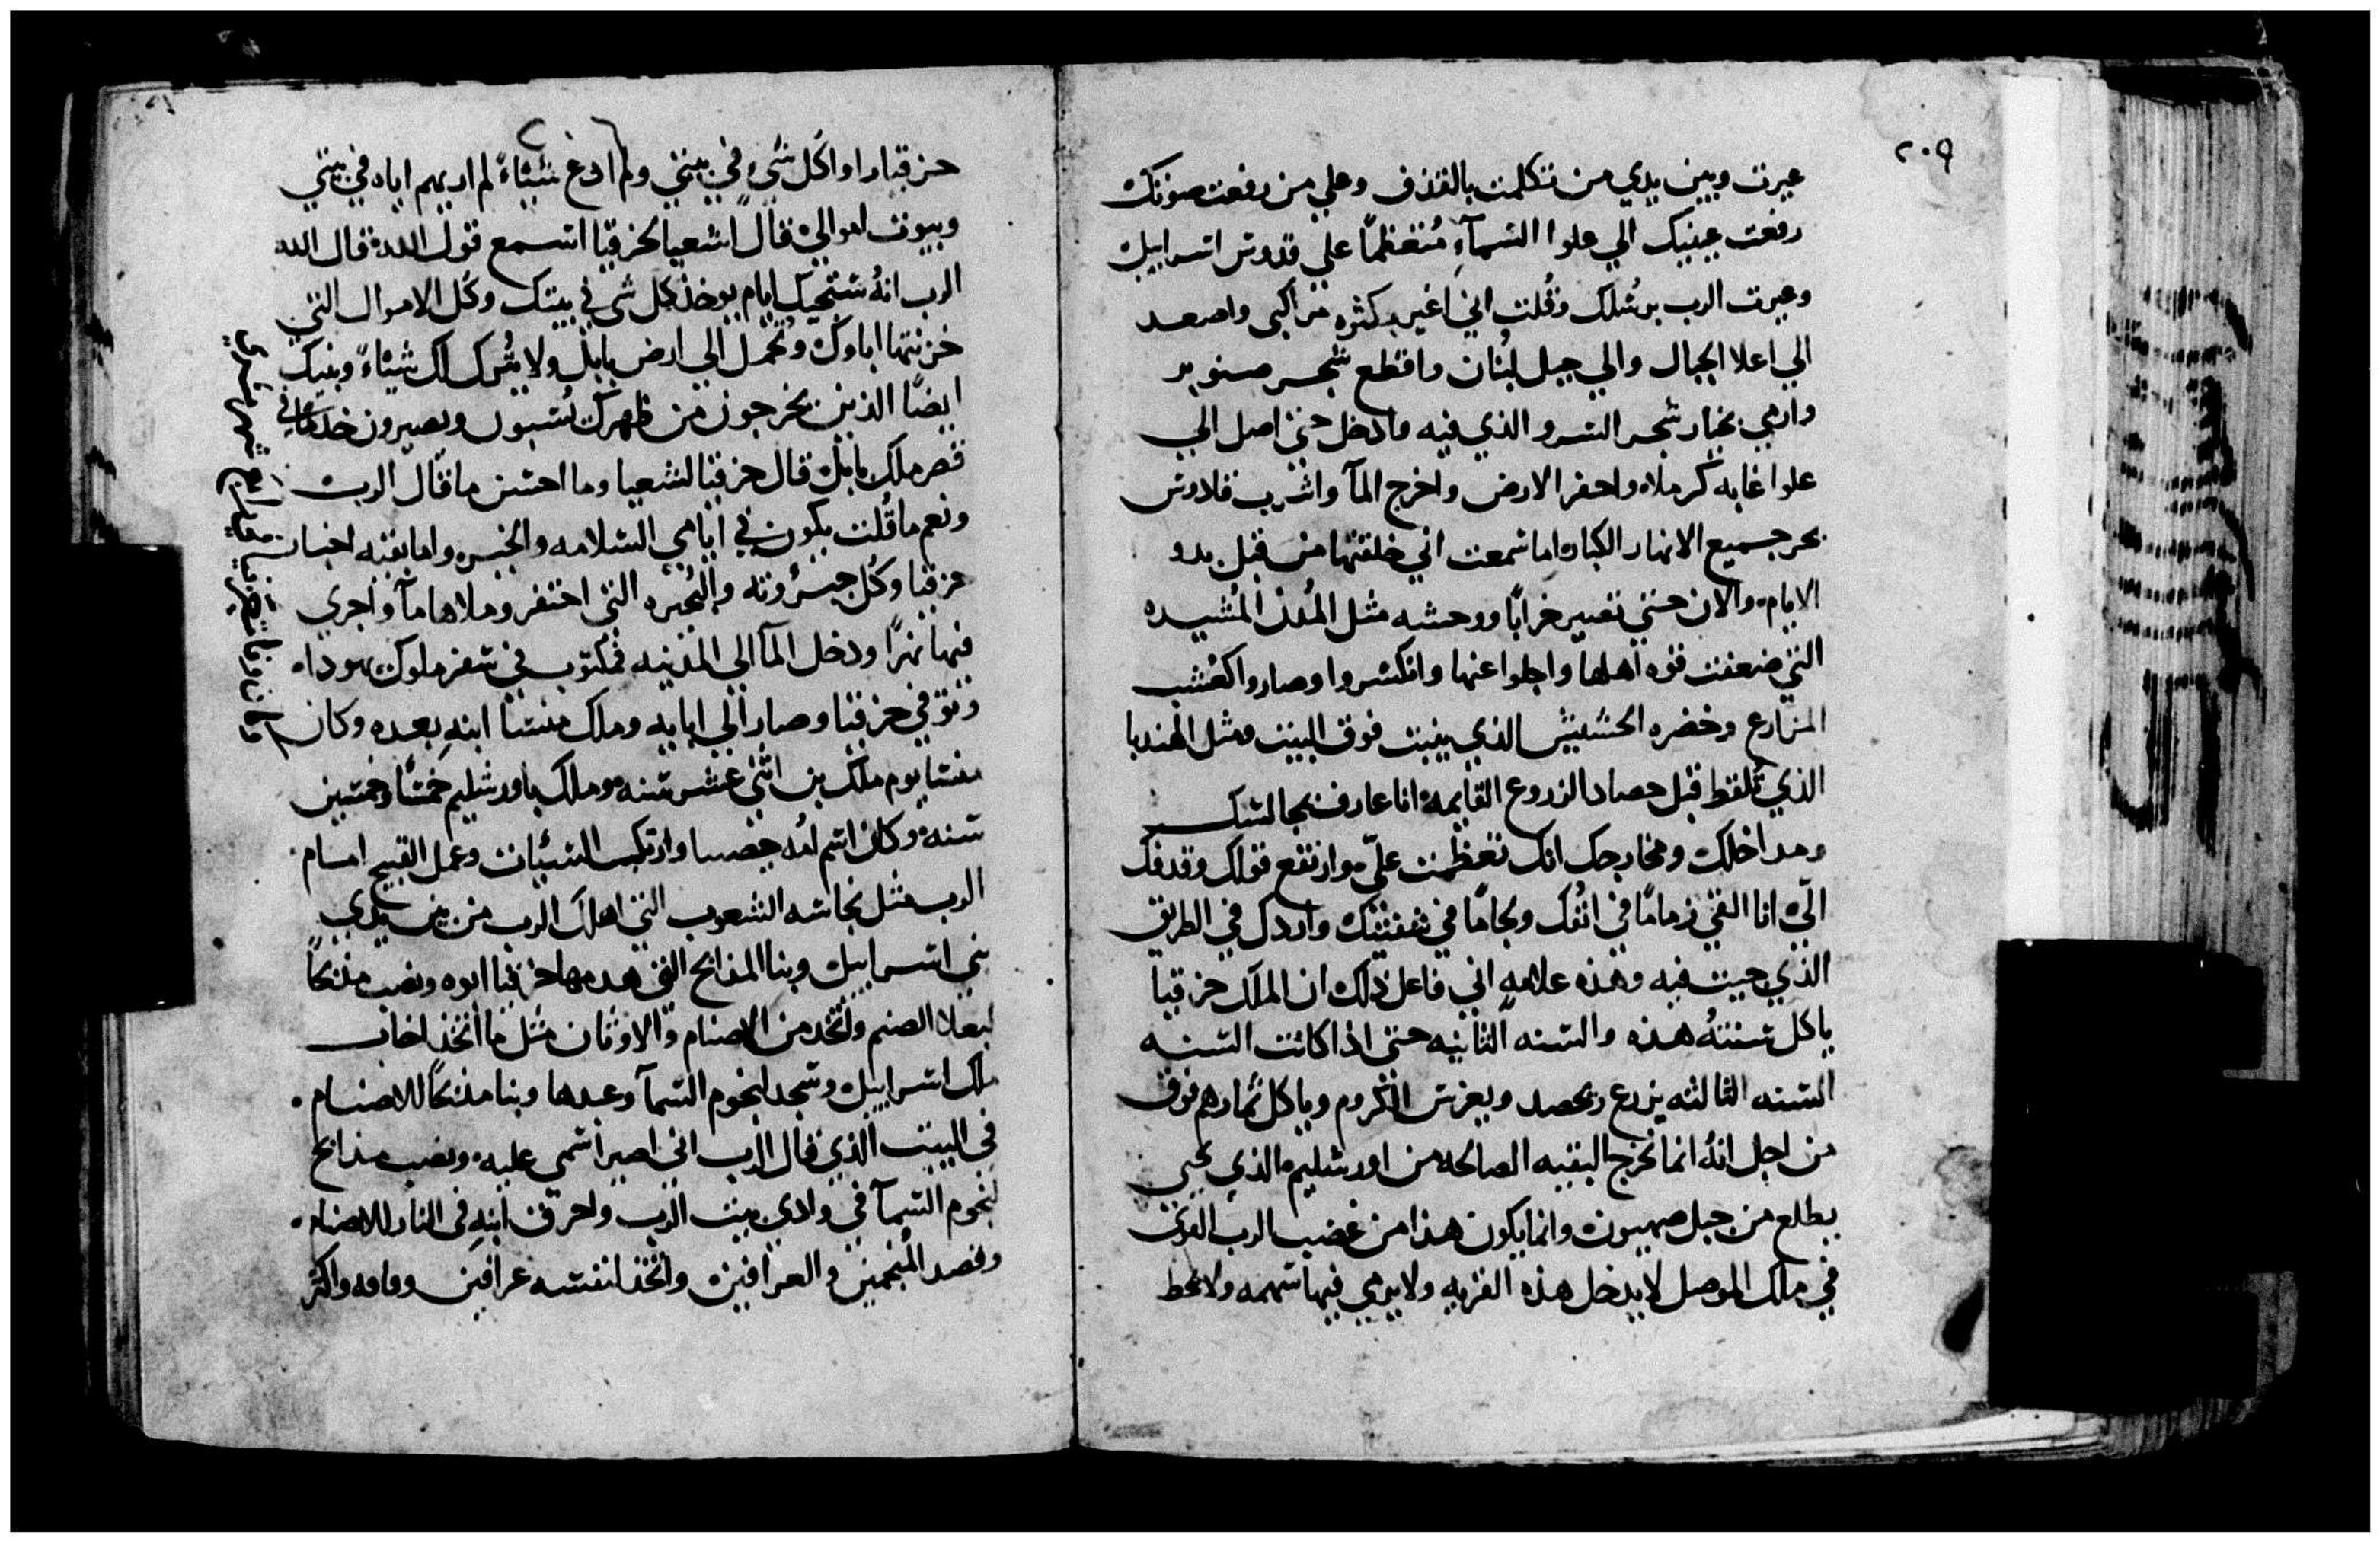 ٢٠٩
عيرت وبين يدي من تكلمت بالقذف وعلي من رفعت صوتك
رفعت عينيك الي علوا السمآء مُتعظمًا علي قدوس اسراييل
وعيرت الرب برسُلك وقُلت اني اغير بكثره مراكبى واصعد
الي اعلا الجبال والي جبل لبُنان واقطع شجر صنوبر
وارمي بخيار شجر السرو الذي فيه وادخل حتى اصل الي
علوا غابه كرملاه واحفر الارض واخرج المآ واشرب فلادوس
بحر جميع الانهار الكبار اما سمعت اني خلقتها من قبل بدو
الايام والان حتي تصير خرابًا ووحشه مثل المُدن المُشيده
التي ضعفت قوه اهلها واجلوا عنها وانكسروا وصاروا كعُشب
المزارع وخضره الحشيش الذي ينبت فوق البيت ومثل الهندبا
الذي تُلقط قبل حصاد الزروع القايمه انا عارف بجالسك
ومداخلك ومخارجك انك تعظمت عليّ وارتفع قولك وقدفك
اليّ انا القي زمامًا في انفُك ولجامًا في شفتيك واردك في الطريق
الذي جيت فيه وهذه علامه اني فاعل ذلك ان الملك حزقيا
ياكل سنتهُ هذه والسنه الثانيه حتى اذا كانت السنه
السنه الثالثه يزرع ويحصد ويغرس الكروم وياكل ثمارهم فوق
من اجل انهُ انما تخرج البقيه الصالحه من اورشليم والذي يحيى
يطلع من جبل صهيون وانما يكون هذا من غضب الرب القوي
في ملك الموصل لا يدخل هذه القريه ولا يرمي فيها سهمه ولا يحط
حزقيا راوا كل شي في بيتي ولم ادع شيئاً لم اريهم اياه في بيتي
وبيوت اموالي قال اشعيا لحزقيا اسمع قول الله قال الله
الرب انهُ ستجيك ايام يوخذ كل شى في بيتك وكل الاموال التي
خزنتها اباوك وتُحمل الي ارض بابل ولا يُترك لك شيئاً وبنيك
ايضًا الذين يخرجون من ظهرك يُسبون ويصيرون خدمًا في
قصر ملك بابل قال حزقيا لشعيا وما احسن ما قال الرب
ونعم ما قُلت يكون في ايامي السلامه والخير واما بقيه اخبار
حزقيا وكُل جبرُوته والبُحيره التى احتفر وملاها مآ واجري
فيها نهرًا ودخل المآ الي المدينه فمكتوب في سفر ملوك يهوداه
وتوفي حزقيا وصار الي ابايه وملك منسا ابنهِ بعده وكان
منسا يوم ملك بن اثنى عشر سنه وملك باورشليم خمسًا وخمسين
سنه وكان اسم امُه حفصيبا وارتكب السيئات وعمل القبيح امام
الرب مثل نجاسه الشعوب التي اهلك الرب من بين يدي
بني اسراييل وبنا المذابح التي هدمها حزقيا ابوه ونصب مذبحًا
لبعلا الصنم واتخد من الاصنام والاوثان مثل ما اتخذ اخاب
ملك اسراييل وسجد لنجوم السمآ وعبدها وبنا مذبحًا للاصنام
في البيت الذي قال الرب اني اصير اسمى عليه ونصب مذابح
لنجوم السمآ في وادي بيت الرب واحرق ابنهِ في النار للاصنام
وقصد المُنجمين والعرافين واتخذ لنفسه عرافين وقافه واكثر